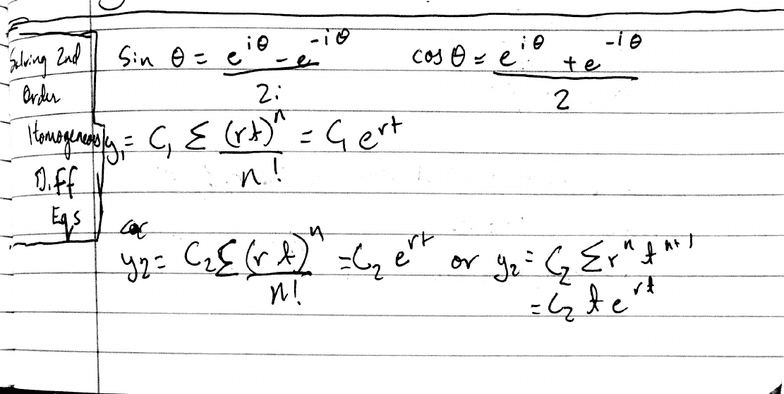 Solving 2nd
Order
Homogeneous
Diff
Eqs
Sin θ = (e^{iθ} - e^{-iθ})/2i    cos θ = (e^{iθ} + e^{-iθ})/2
y₁ = C₁ Σ (rt)^n/n! = C₁ e^{rt}
y₂ = C₂ Σ (r t)^n/n! = C₂ e^{rt} or y₂ = C₂ Σ r^n t^{n+1}
= C₂ t e^{rt}